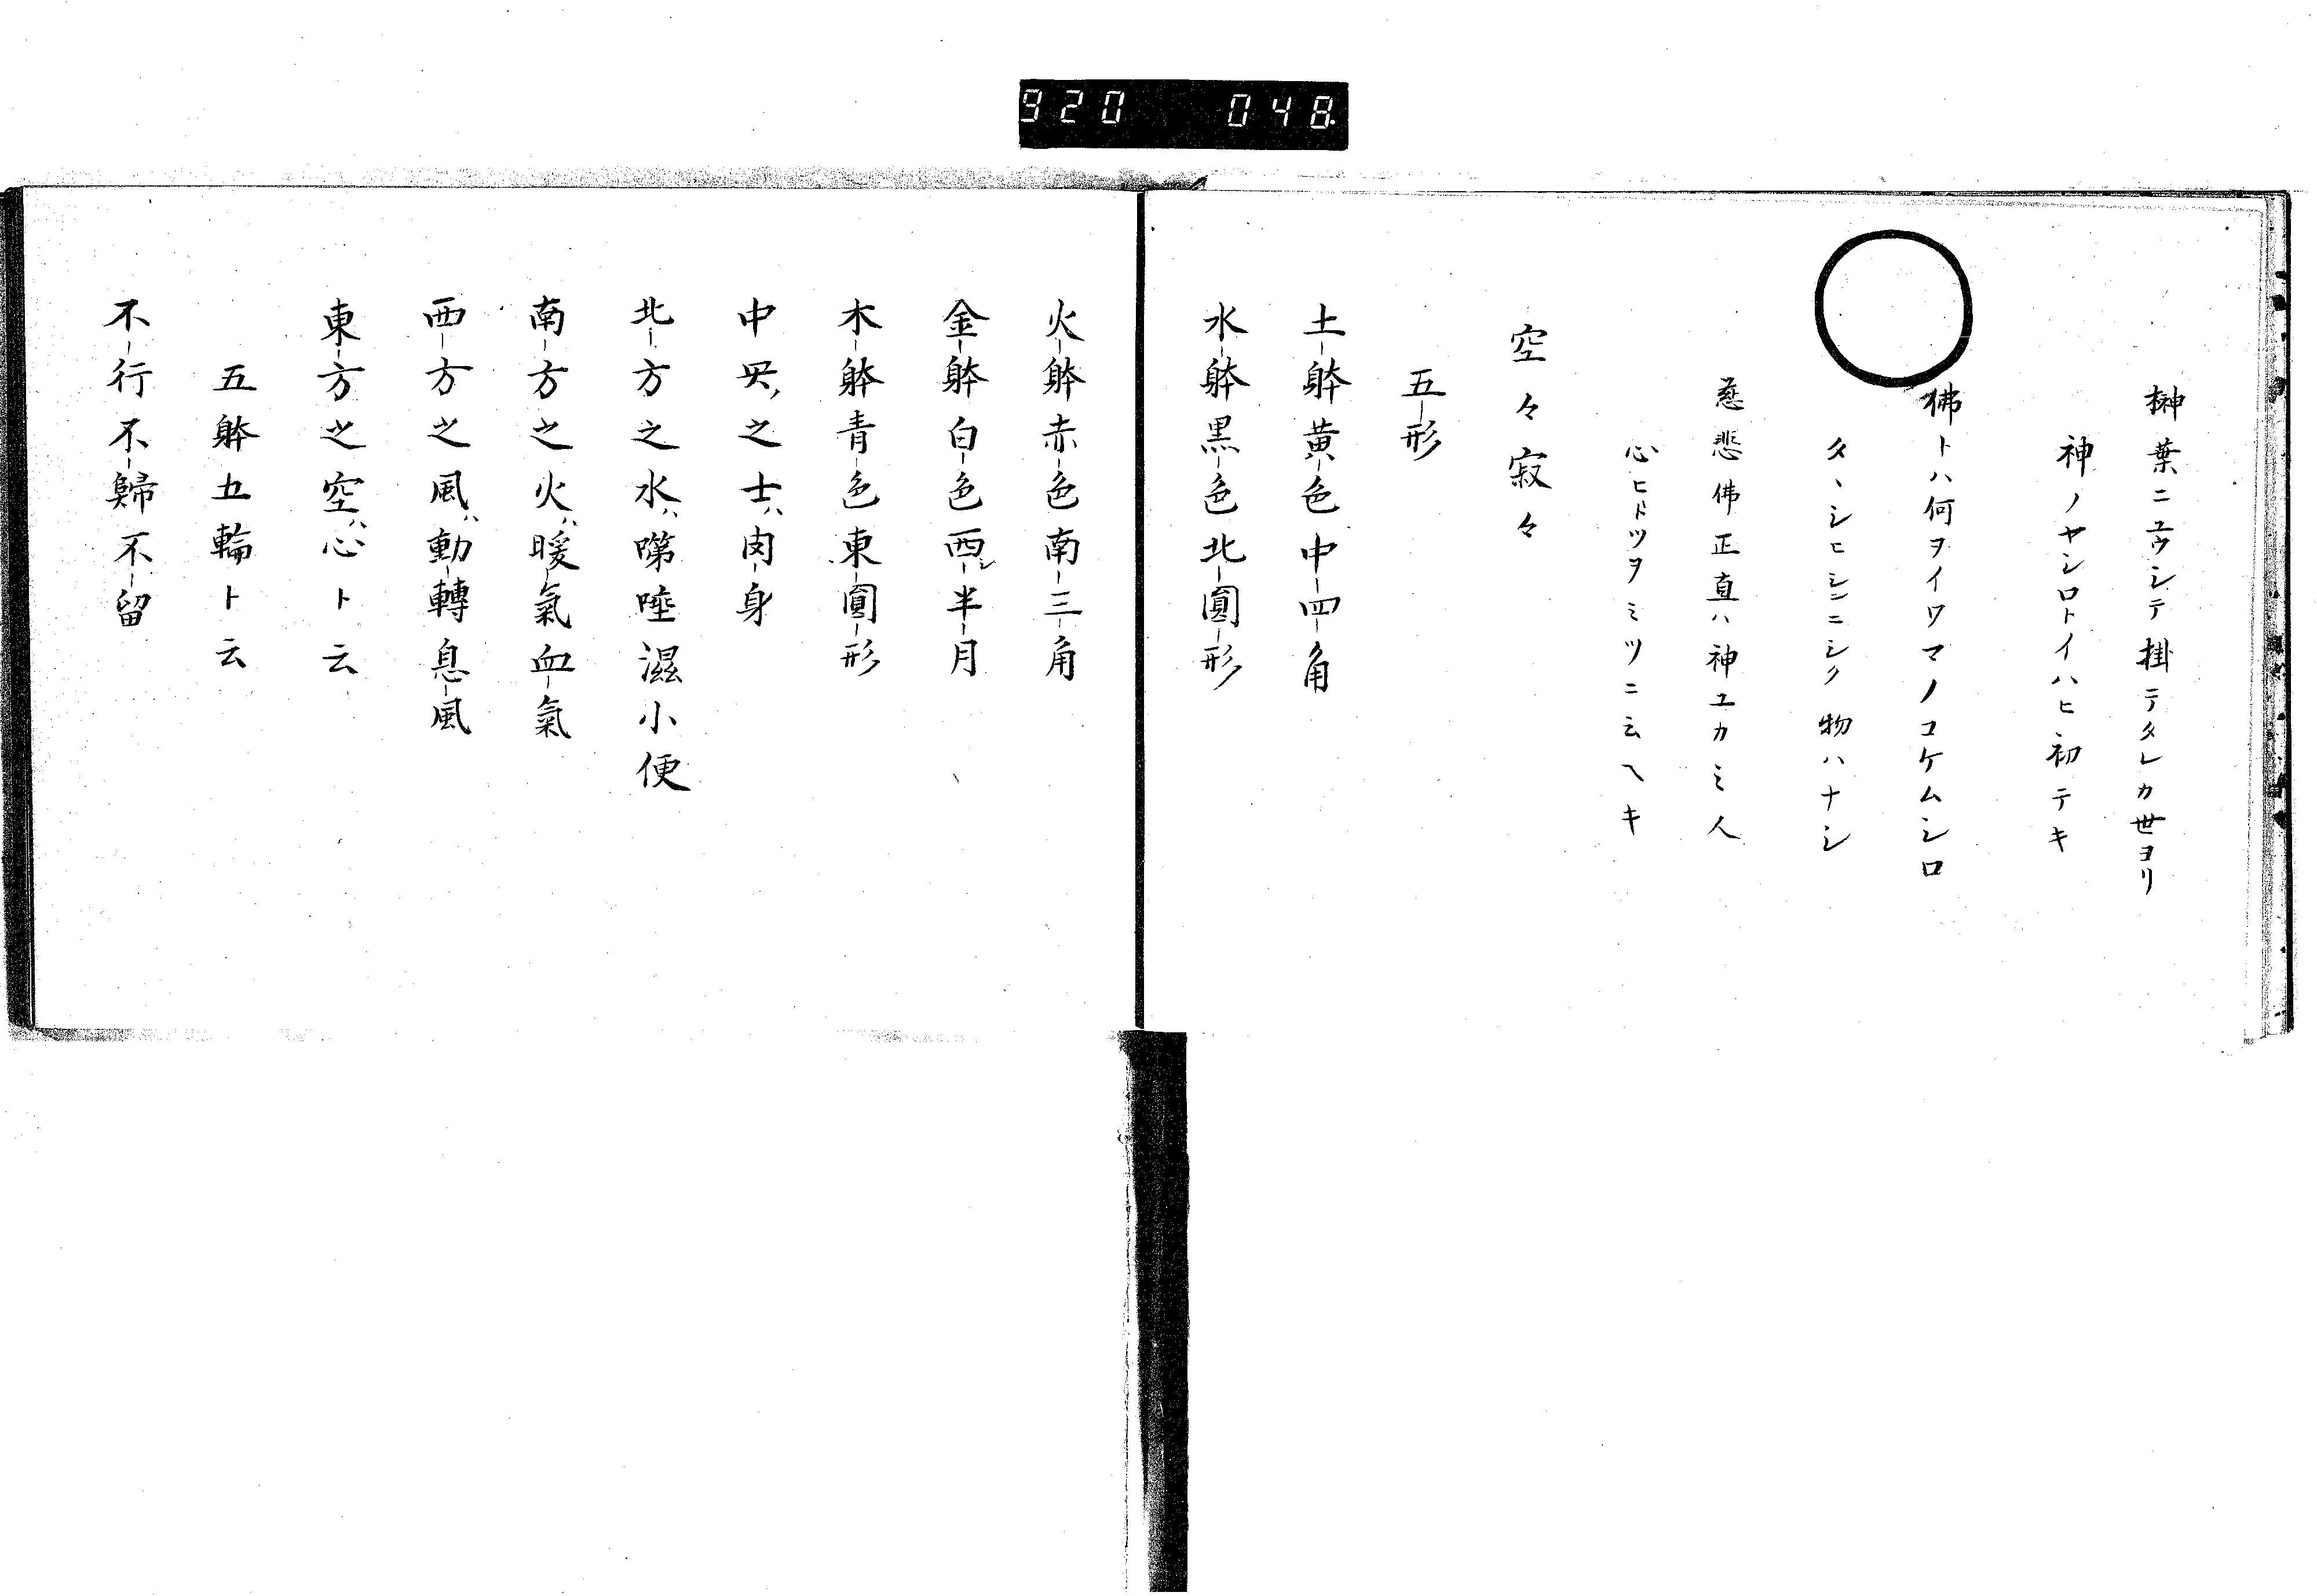 920 048.
榊葉ニユウシテ掛テタレカ世ヨリ
神ノヤシロトイハヒ初テキ
佛トハ何ヲイワマノコケムシロ
タヽシヒシンニシク物ハナシ
慈悲佛正直ハ神ユカミ人
心ヒトツヲミツニ云ヘキ
空々寂々
五形
土躰黄色中四角
水躰黒色北圓形
火躰赤色南三角
金躰白色西半月
木躰青色東圓形
中央之土ハ肉身
北方之水ハ唾滋小便
南方之火ハ暖氣血氣
西方之風ハ動轉息風
東方之空ハ心ト云
五躰五輪ト云
不行不歸不留